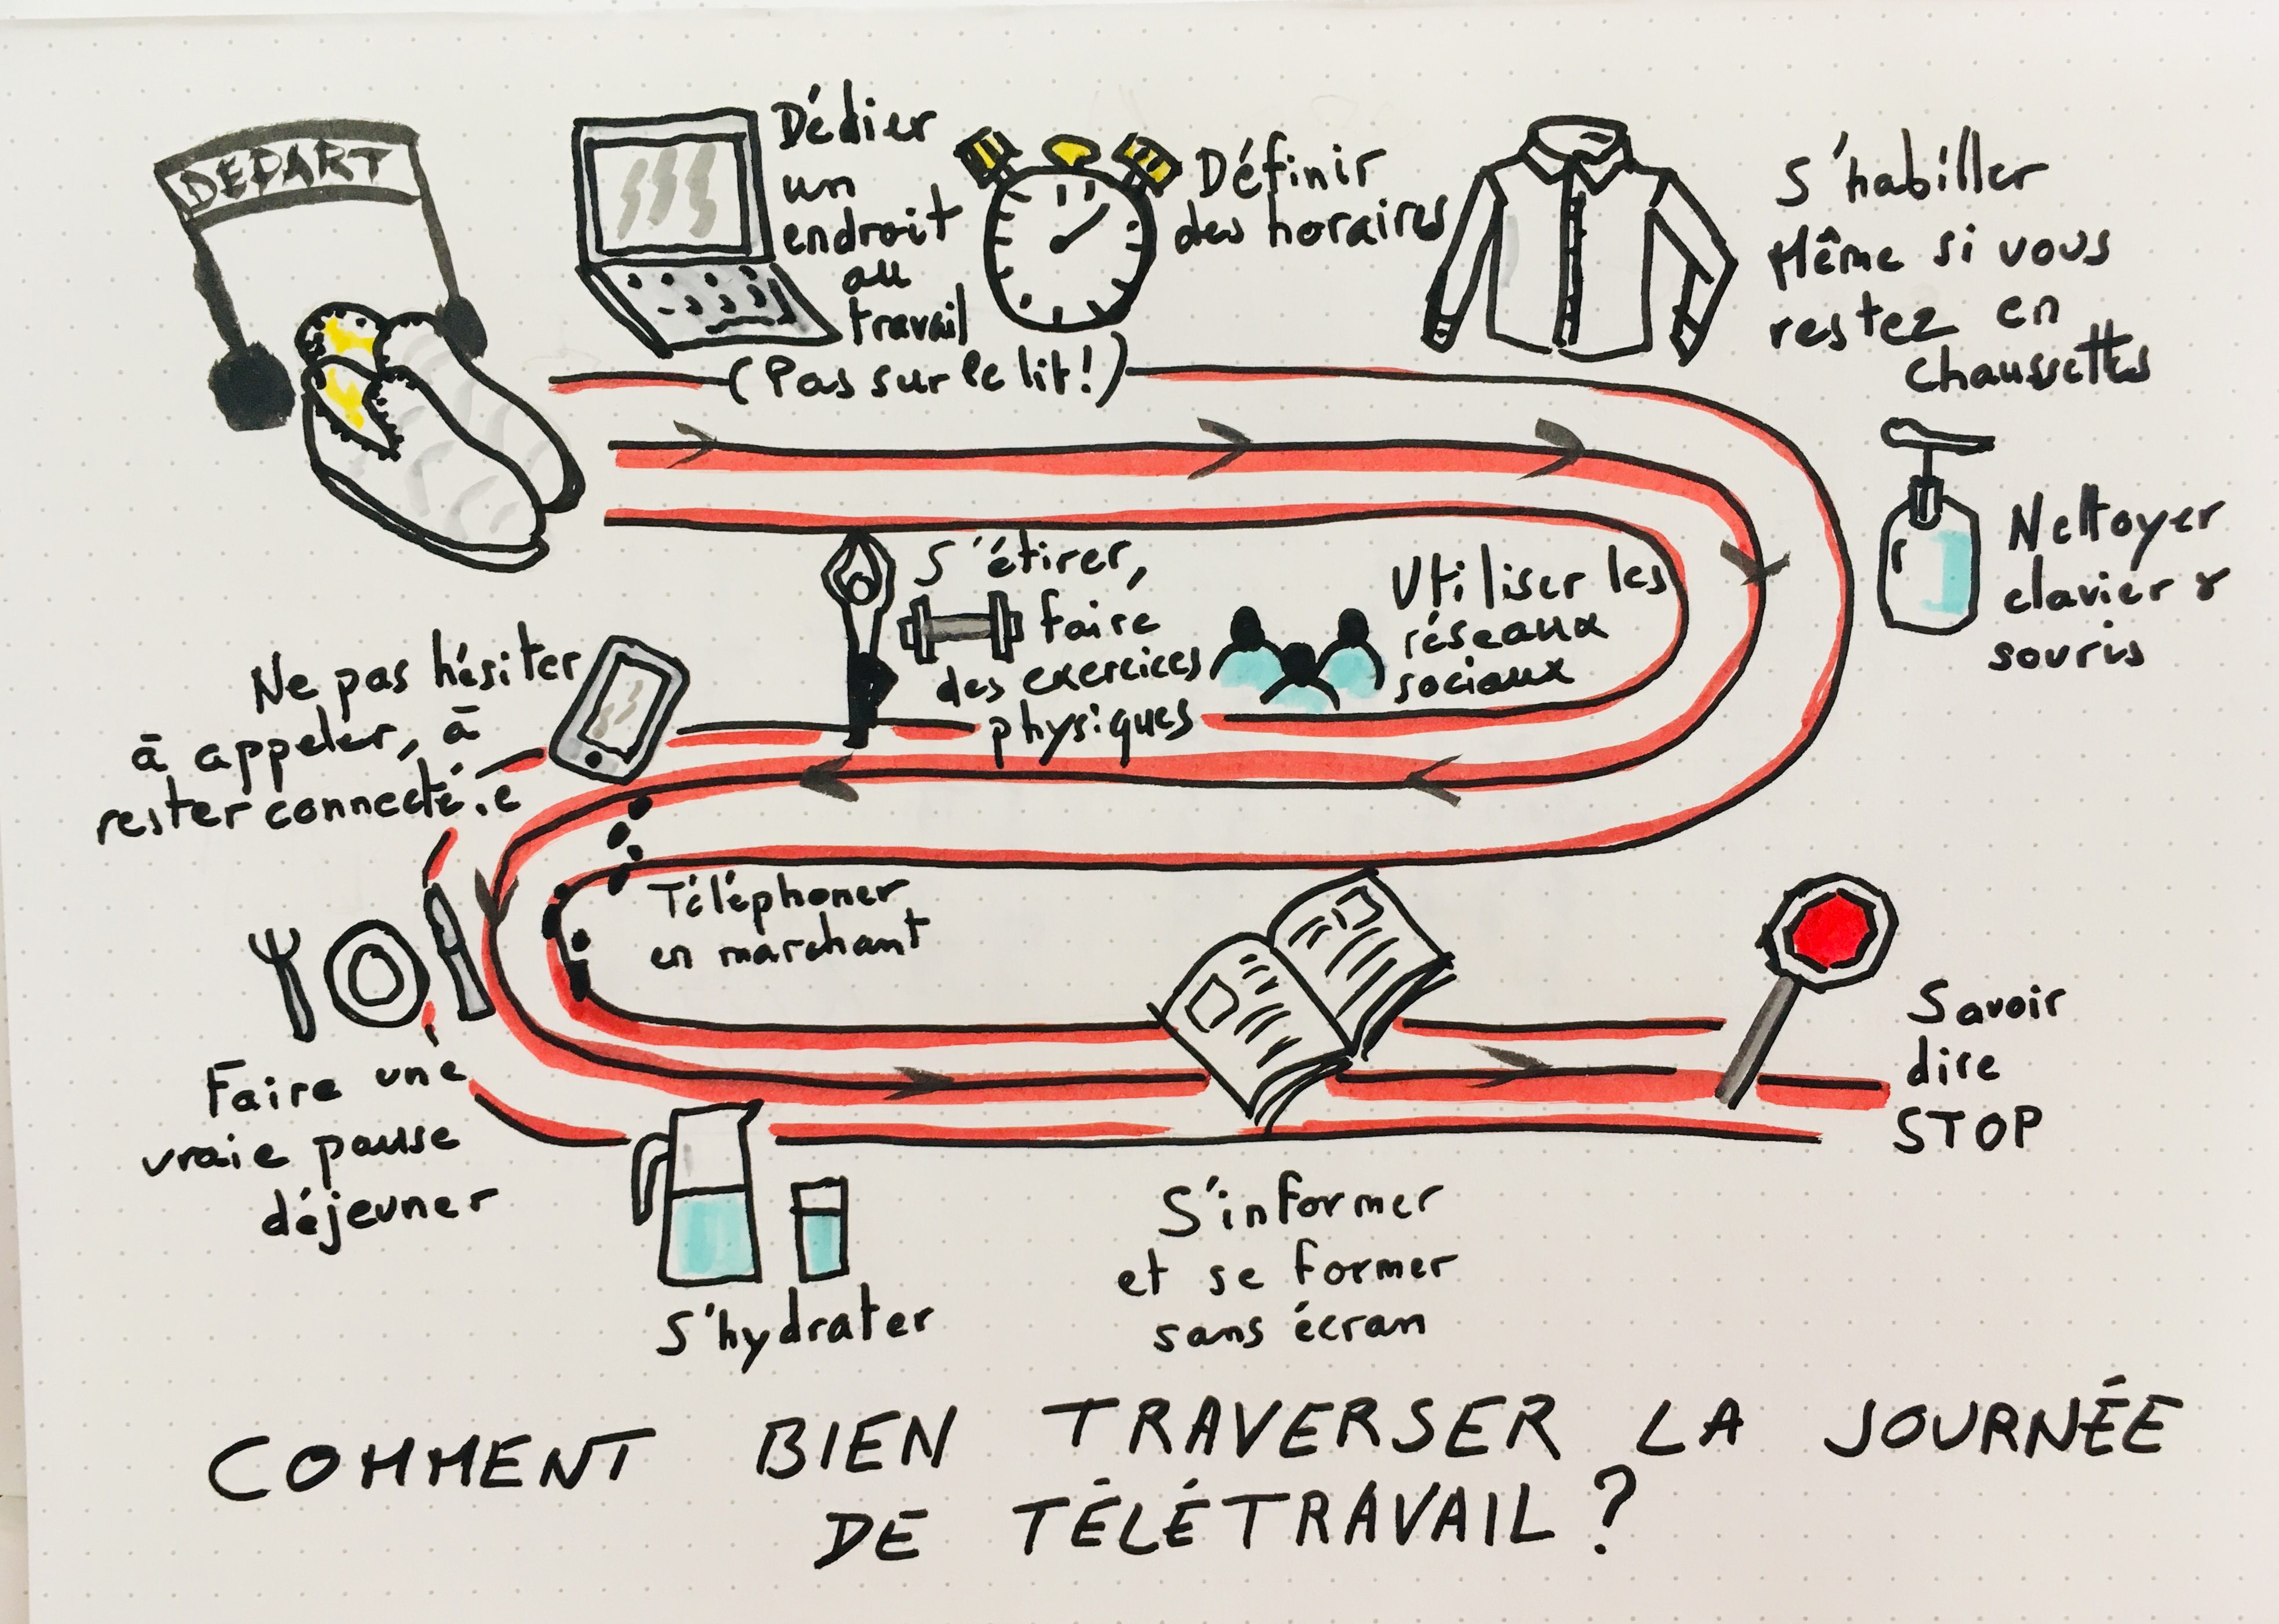 DEPART
Dédier
un
endroit
au
travail
(Pas sur le lit!)
Définir
des horaires
S'habiller
Même si vous
restez en
chaussettes
Nettoyer
clavier &
souris
Utiliser les
réseaux
sociaux
S'étirer,
faire
des exercices
physiques
Ne pas hésiter
à appeler, à
rester connecté.e
Téléphoner
en marchant
Faire une
vraie pause
déjeuner
S'hydrater
S'informer
et se former
sans écran
Savoir
dire
STOP
COMMENT BIEN TRAVERSER LA JOURNÉE
DE TÉLÉTRAVAIL ?